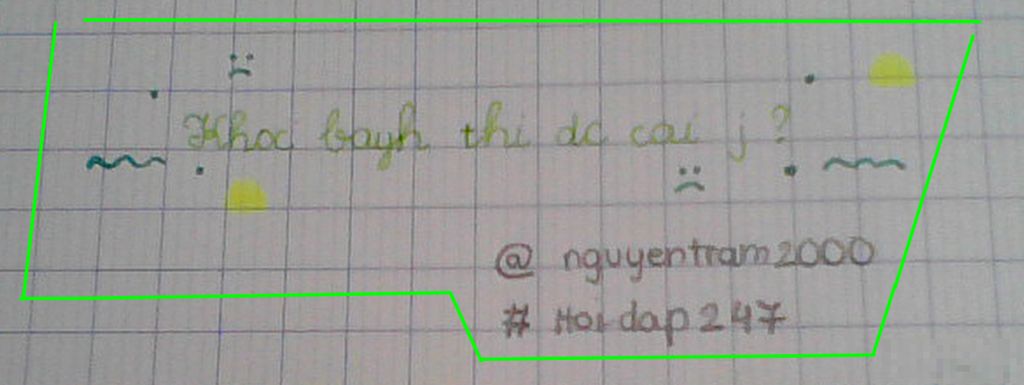 Khoc bayh thi dc cai j ?
@ nguyentram2000
# Hoi dap 247